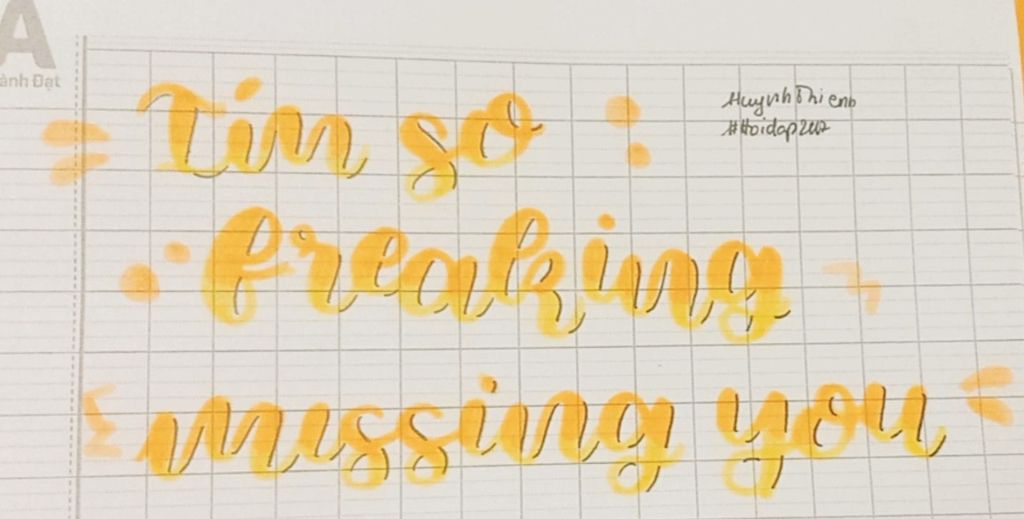 A
ành Đạt
I'm so
freaking
missing you
HuynhThienb
#Hoidap247